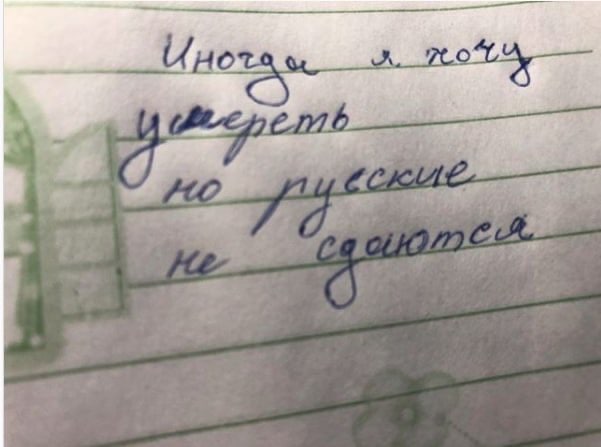 Иногда я хочу
умереть
но русские
не сдаются